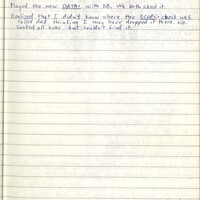 Played the new game with DB. We both liked it.
Realized that I didn't know where the $6000+ check was.
Called dad thinking I may have dropped it there. We
looked all over but couldn't find it.